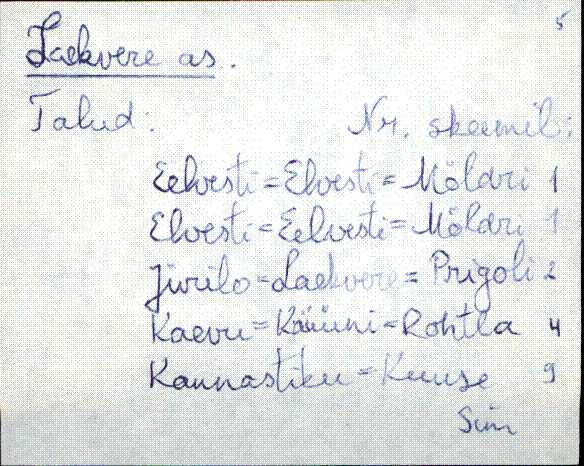 5
Laekvere as.
Talud: Nr. skeemil:
Eelvesti=Elvesti=Möldri 1
Elvesti=Eelvesti=Möldri 1
Jürilo=Laekvere=Prigoli 2
Kaevu=Käüni=Rohtla 4
Kannastiku=Kuuse 9